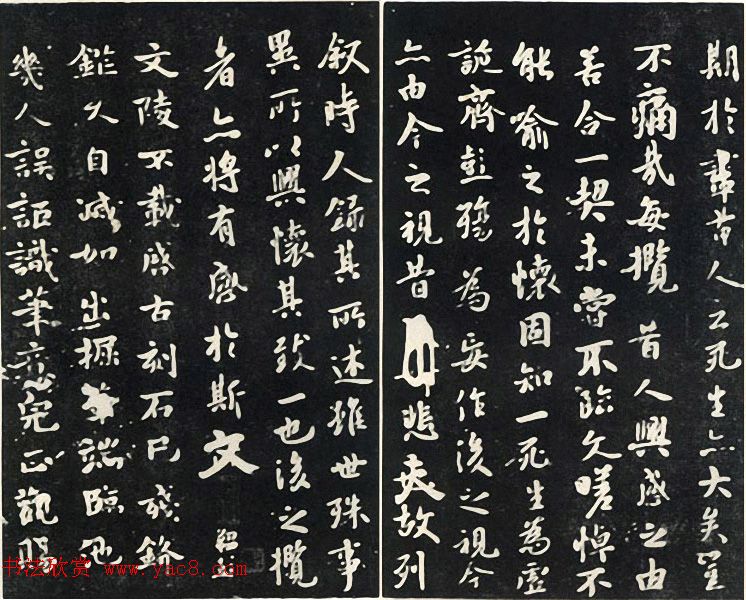 期於盡昔人云死生亦大矣豈
不痛哉每攬昔人興感之由
若合一契未嘗不臨文嗟悼不
能喻之於懷固知一死生為虛
誕齊彭殤為妄作後之視今
亦由今之視昔悲夫故列
叙時人錄其所述雖世殊事
異所以興懷其致一也後之攬
者亦將有感於斯文
文陵不載古刻石已殘鋒
久自滅加出掘筆端臨池
幾人誤詔識筆意宛正觀時
书法欣赏 www.yac8.com